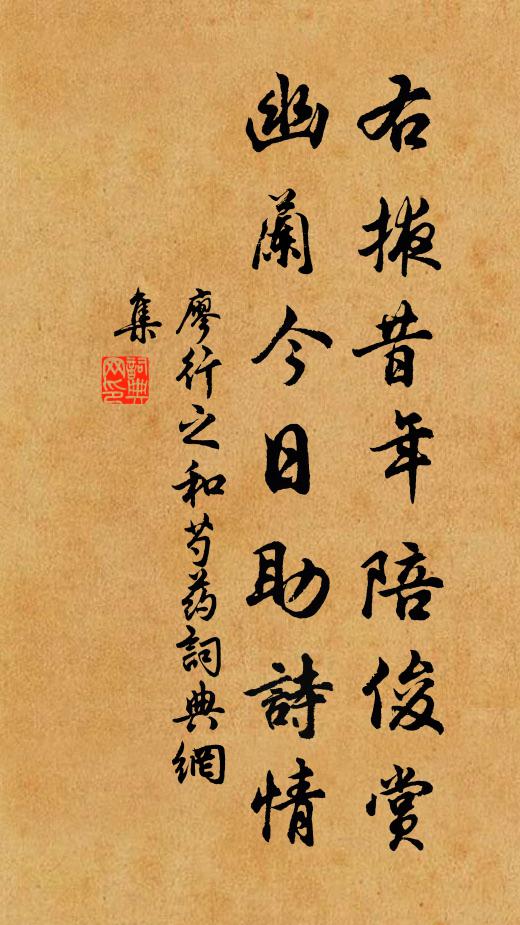 右掖昔年陪俊賞
幽蘭今日助詩情
廖行之和芍药詞典網
集
詞典
网印